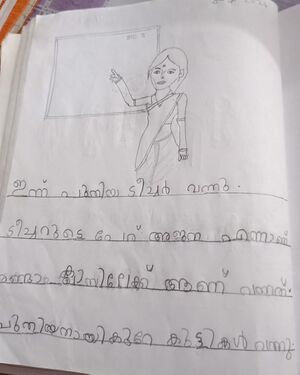 ഇന്ന് പുതിയ ടീച്ചർ വന്നു.
ടീച്ചറുടെ പേര് അജന എന്നാണ്
രണ്ടാം ക്ലാസിലേക്ക് ആണ് വന്നത്.
പുതിയതായി കുറേ കുട്ടികൾ വന്നു.